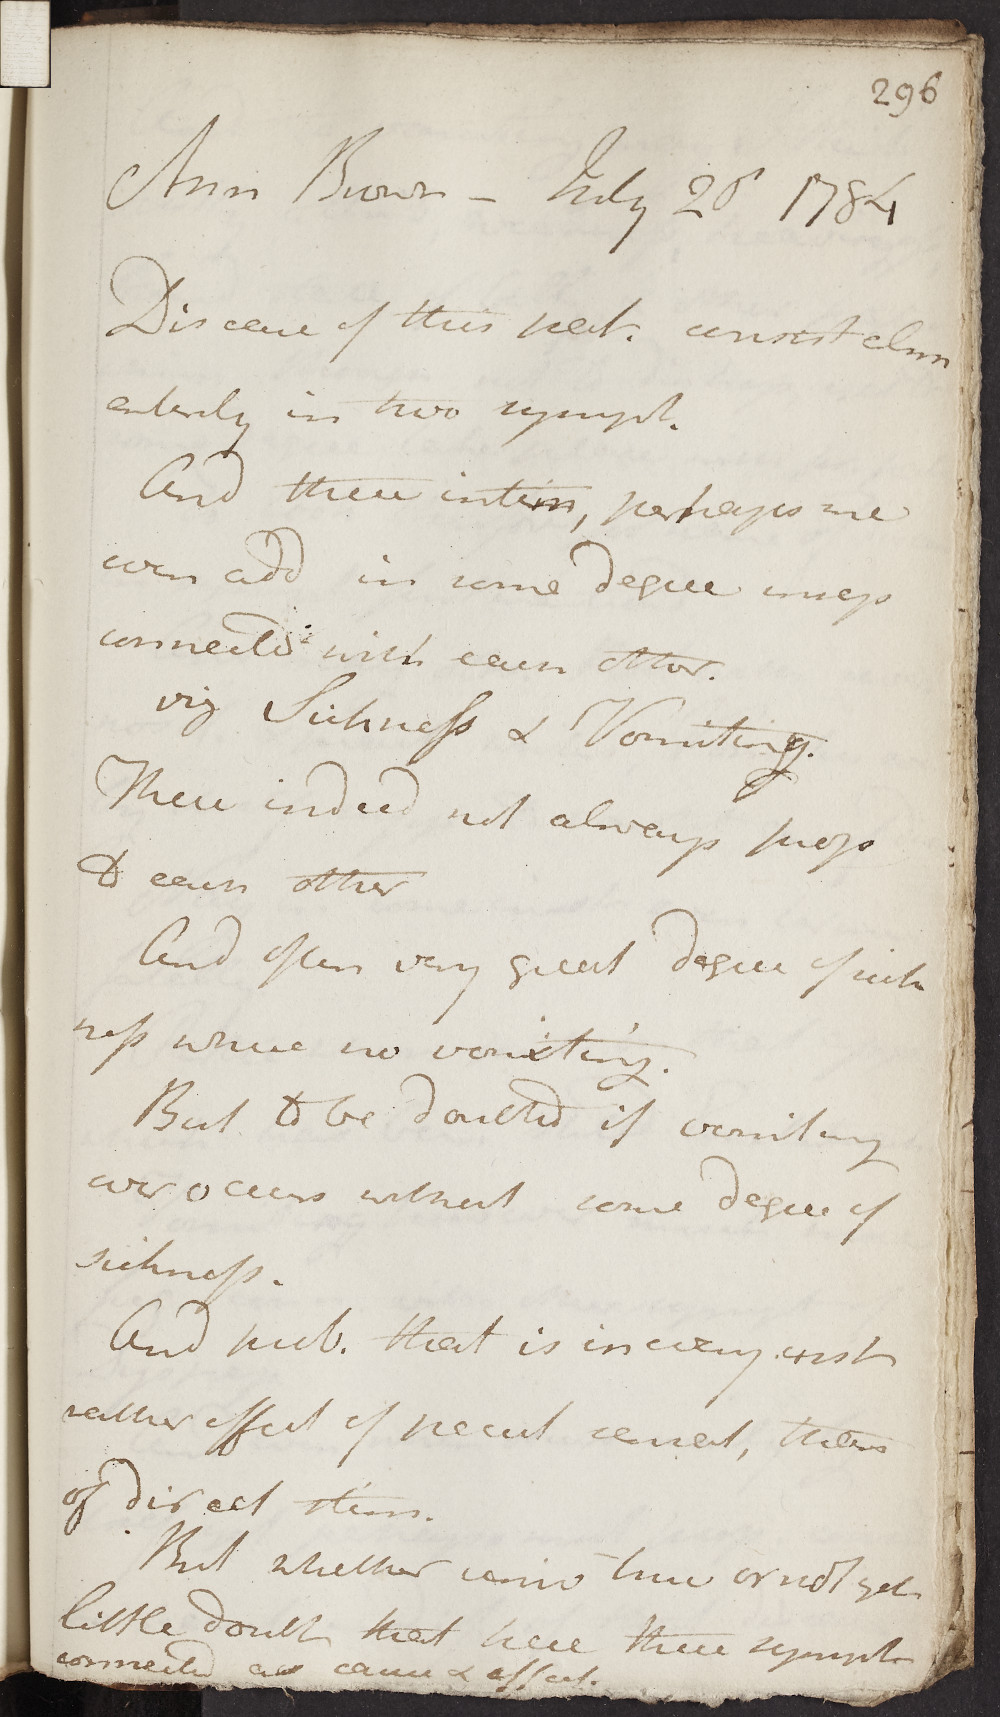 296
Ann Brown - July 28 1784
Disease of this pat. consist almo
entirely in two sympt.
And these intim, perhaps we
can add in some degree
connected with each other.
viz Sickness & Vomiting.
These indeed not always prop
to each other
And often very great degree of sick
ness where no vomiting.
But to be doubted if vomiting
ever occurs without some degree of
sickness.
And prob. that is in every inst
rather effect of pecul sensat, than
of direct stim.
But whether univ true or not yet
little doubt that here these sympt
connected as cause & effect.